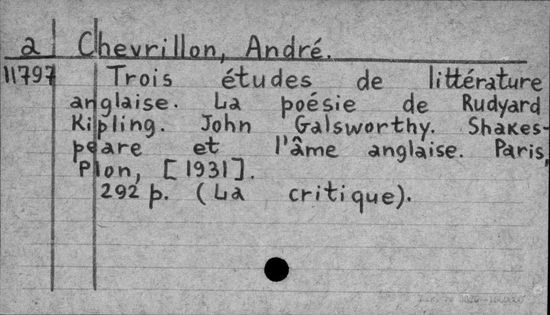 a Chevrillon, André.
11797 Trois études de littérature
anglaise. La poésie de Rudyard
Kipling. John Galsworthy. Shakes-
peare et l'âme anglaise. Paris,
Plon, [1931].
292 p. (La critique).